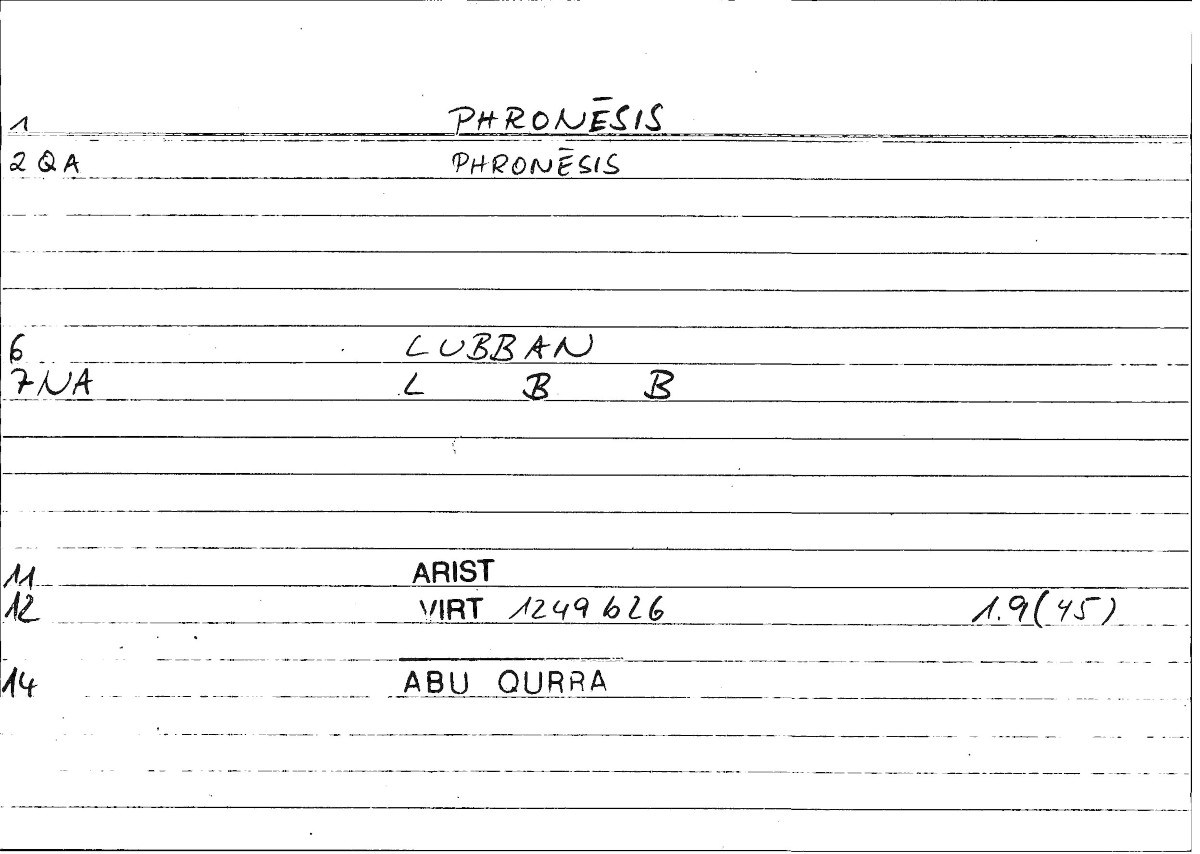 1 PHRONĒSIS
2 QA PHRONĒSIS
6 LUBBAN
7 NA L B B
11 ARIST
12 VIRT 1249 b26 1.9(45)
14 ABU QURRA